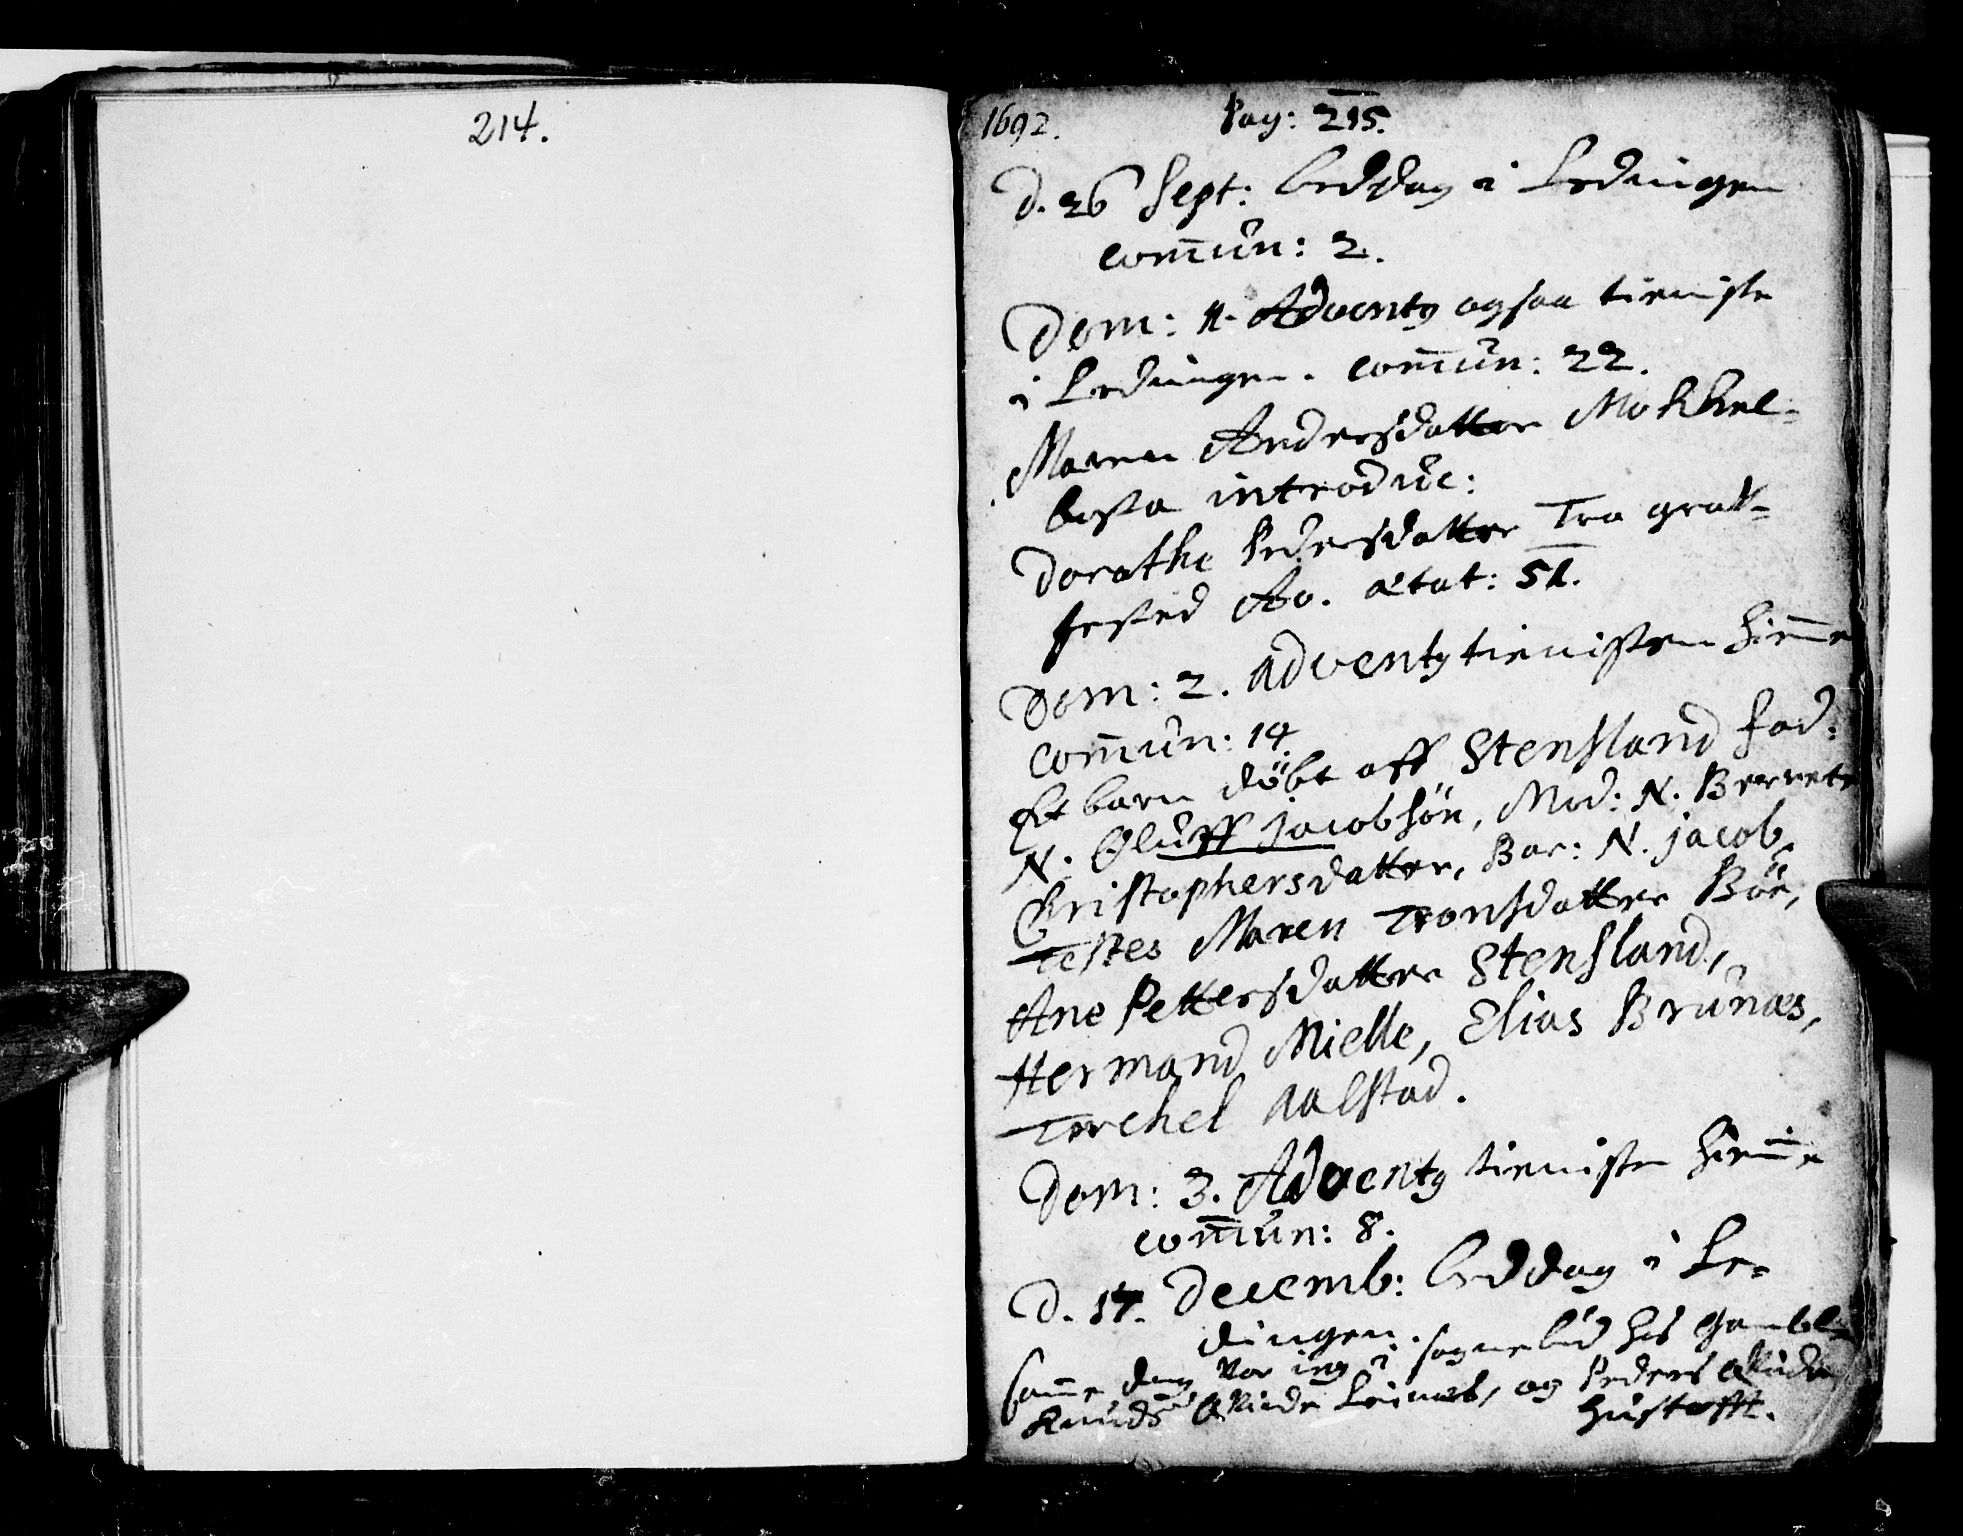 214.
1692. Pag: 215.
D. 26 Sept: bedsdag i Ledingen
com̄un: 2.
Dom: 1. Adventq ogsaa tieniste
i Ledingen. com̄un: 22.
Maren Andersdatter Mokkel-
bosta introduc:
Dorothe Pedersdatter Tra graff-
fested Ao. ætat: 51.
Dom: 2. Adventq tienisten hiem̄e
com̄un: 14.
Et barn döbt aff Stensland fad:
N. Oluff Jacobsön, Mod: N. Berrete
Christophersdatter, Bar: N. Jacob,
Testes Maren Tronsdatter Böe,
Ane Pettersdatter Stensland,
Hermand Mielle, Elias Brunæs,
Terchel Aalstad.
Dom: 3. Adventq tienisten hiem̄e
com̄un: 8.
D. 17. Decemb: beddag i Le-
dingen.
Sam̄e dag var ieg i sognebud hos Gamble
Knuds Qvinde Leinæs, og Peders Qvinde
Hustofft.